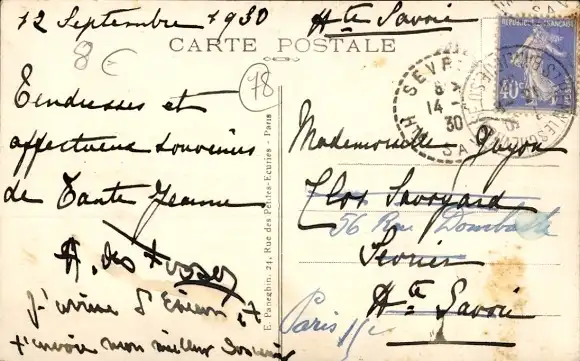 12 Septembre 1930
Hte Savoie
CARTE POSTALE
8
78
RÉPUBLIQUE FRANÇAISE
40
SEVR
14 -
30
Tendresses et
affectueux souvenirs
de Tante Jeanne
A. des Fosses
J'arrive d'Evian et
t'envoie mon meilleur souvenir
E. Paneghin. 24, Rue des Petites-Ecuries - Paris
Mademoiselle Guyon
Clos Savoyard
56 Rue
Sevrier
Hte Savoie
Paris